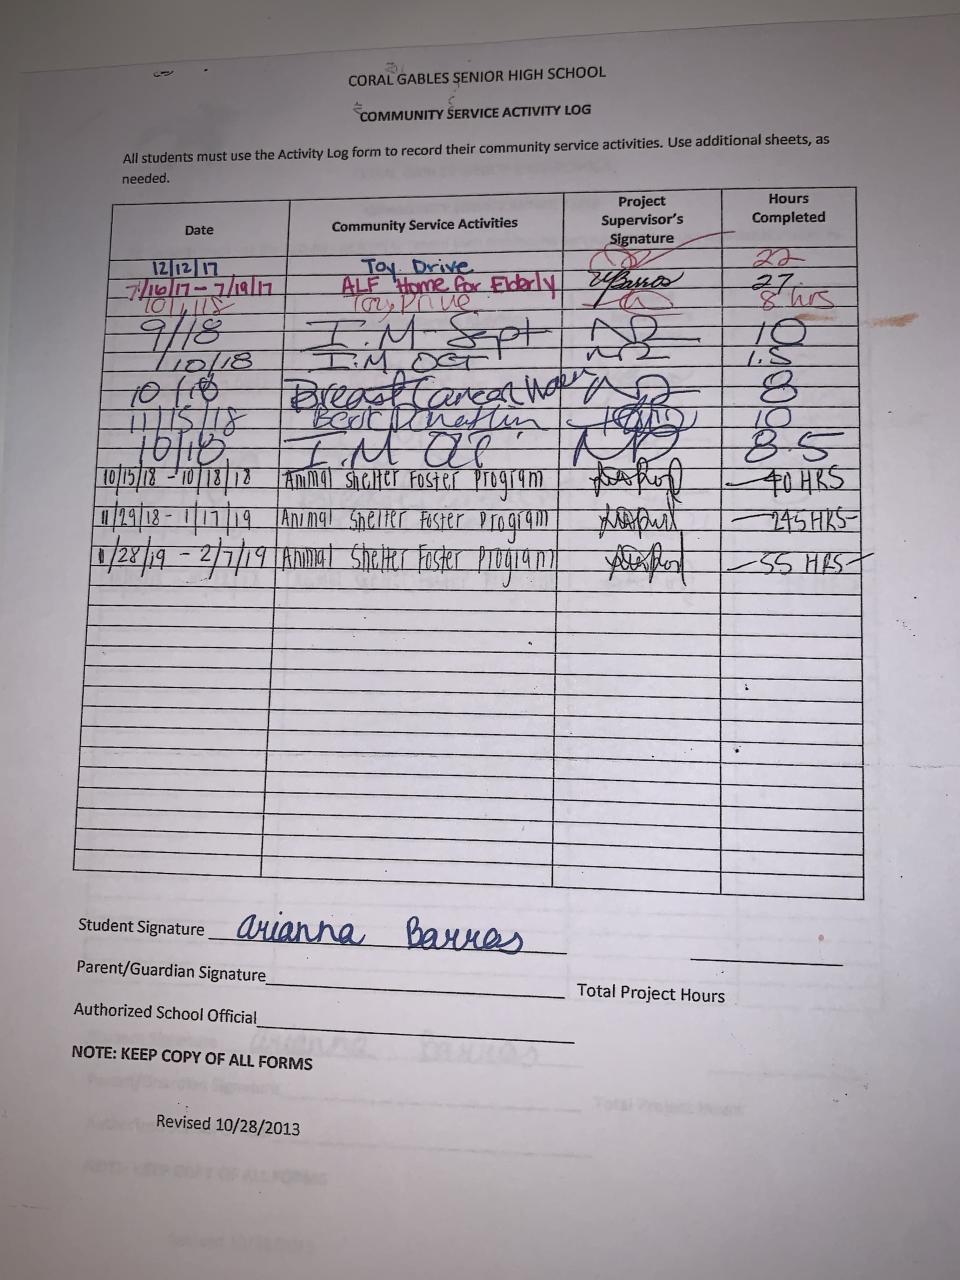 CORAL GABLES SENIOR HIGH SCHOOL
COMMUNITY SERVICE ACTIVITY LOG
All students must use the Activity Log form to record their community service activities. Use additional sheets, as
needed.
Date Community Service Activities Project Supervisor's Signature Hours Completed
12/12/17 Toy Drive 22
7/16/17 - 7/19/17 ALF Home for Elderly 27
Toy Drive 8 hrs
9/18 I.M- Sept NP 10
10/18 I.M OCT NP 1.5
10/18 Breast Cancer NP 8
11/15/18 10
10/18 I.M NP 8.5
10/15/18 - 10/18/18 Animal Shelter Foster Program 40 HRS
11/29/18 - 1/17/19 Animal Shelter Foster Program 245 HRS
1/28/19 - 2/7/19 Animal Shelter Foster Program 55 HRS
Student Signature arianna Barros
Parent/Guardian Signature
Total Project Hours
Authorized School Official
NOTE: KEEP COPY OF ALL FORMS
Revised 10/28/2013